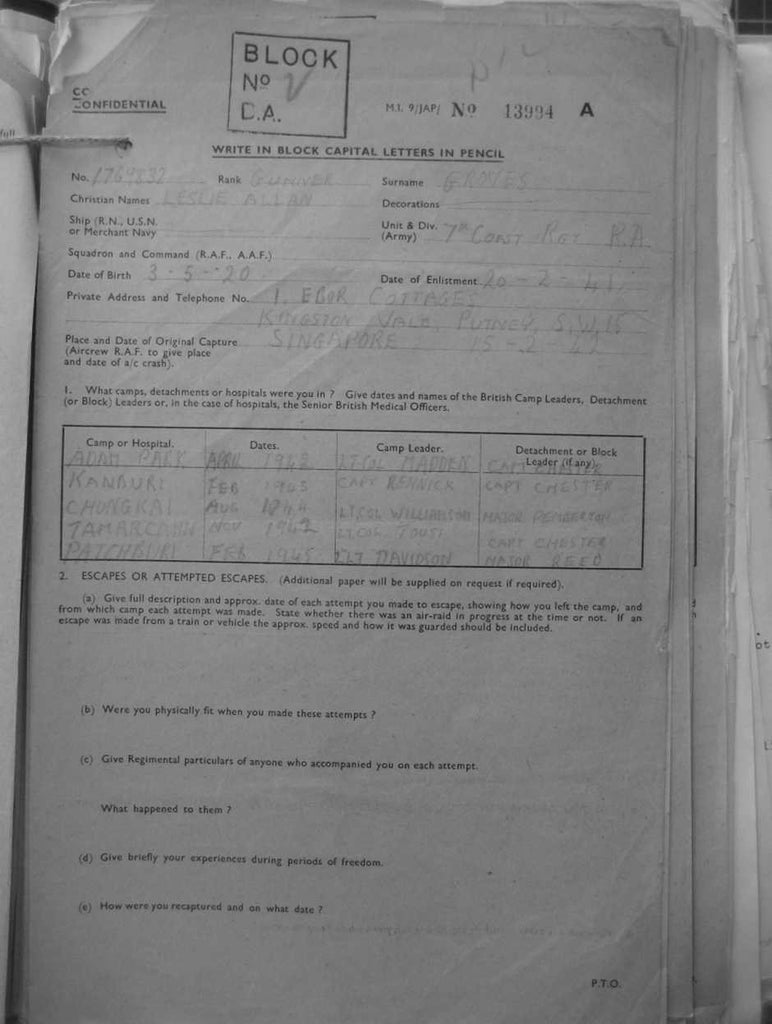 BLOCK
No V
D.A.
CONFIDENTIAL
M.I. 9/JAP/ No 13994 A
full
WRITE IN BLOCK CAPITAL LETTERS IN PENCIL
No. 1769832 Rank GUNNER Surname GROVES
Christian Names LESLIE ALLAN Decorations
Ship (R.N., U.S.N. or Merchant Navy Unit & Div. (Army) 7th COAST RGT R.A.
Squadron and Command (R.A.F., A.A.F.)
Date of Birth 3-5-20 Date of Enlistment 20-2-41
Private Address and Telephone No. 1, EBOR COTTAGES
KINGSTON VALE, PUTNEY, S.W.15
Place and Date of Original Capture SINGAPORE 15-2-42
(Aircrew R.A.F. to give place
and date of a/c crash).
1. What camps, detachments or hospitals were you in ? Give dates and names of the British Camp Leaders, Detachment
(or Block) Leaders or, in the case of hospitals, the Senior British Medical Officers.
Camp or Hospital. Dates. Camp Leader. Detachment or Block Leader (if any).
ADAM PARK APRIL 1942 LT.COL MADDEN CAPT CHESTER
KANBURI FEB 1945 CAPT RENNICK CAPT CHESTER
CHUNGKAI AUG 1944 LT.COL WILLIAMSON MAJOR PEMBERTON
NOV 1942 LT.COL CAPT CHESTER
PATCHBURI FEB 1945 DAVIDSON MAJOR REED
2. ESCAPES OR ATTEMPTED ESCAPES. (Additional paper will be supplied on request if required).
(a) Give full description and approx. date of each attempt you made to escape, showing how you left the camp, and
from which camp each attempt was made. State whether there was an air-raid in progress at the time or not. If an
escape was made from a train or vehicle the approx. speed and how it was guarded should be included.
(b) Were you physically fit when you made these attempts ?
(c) Give Regimental particulars of anyone who accompanied you on each attempt.
What happened to them ?
(d) Give briefly your experiences during periods of freedom.
(e) How were you recaptured and on what date ?
P.T.O.